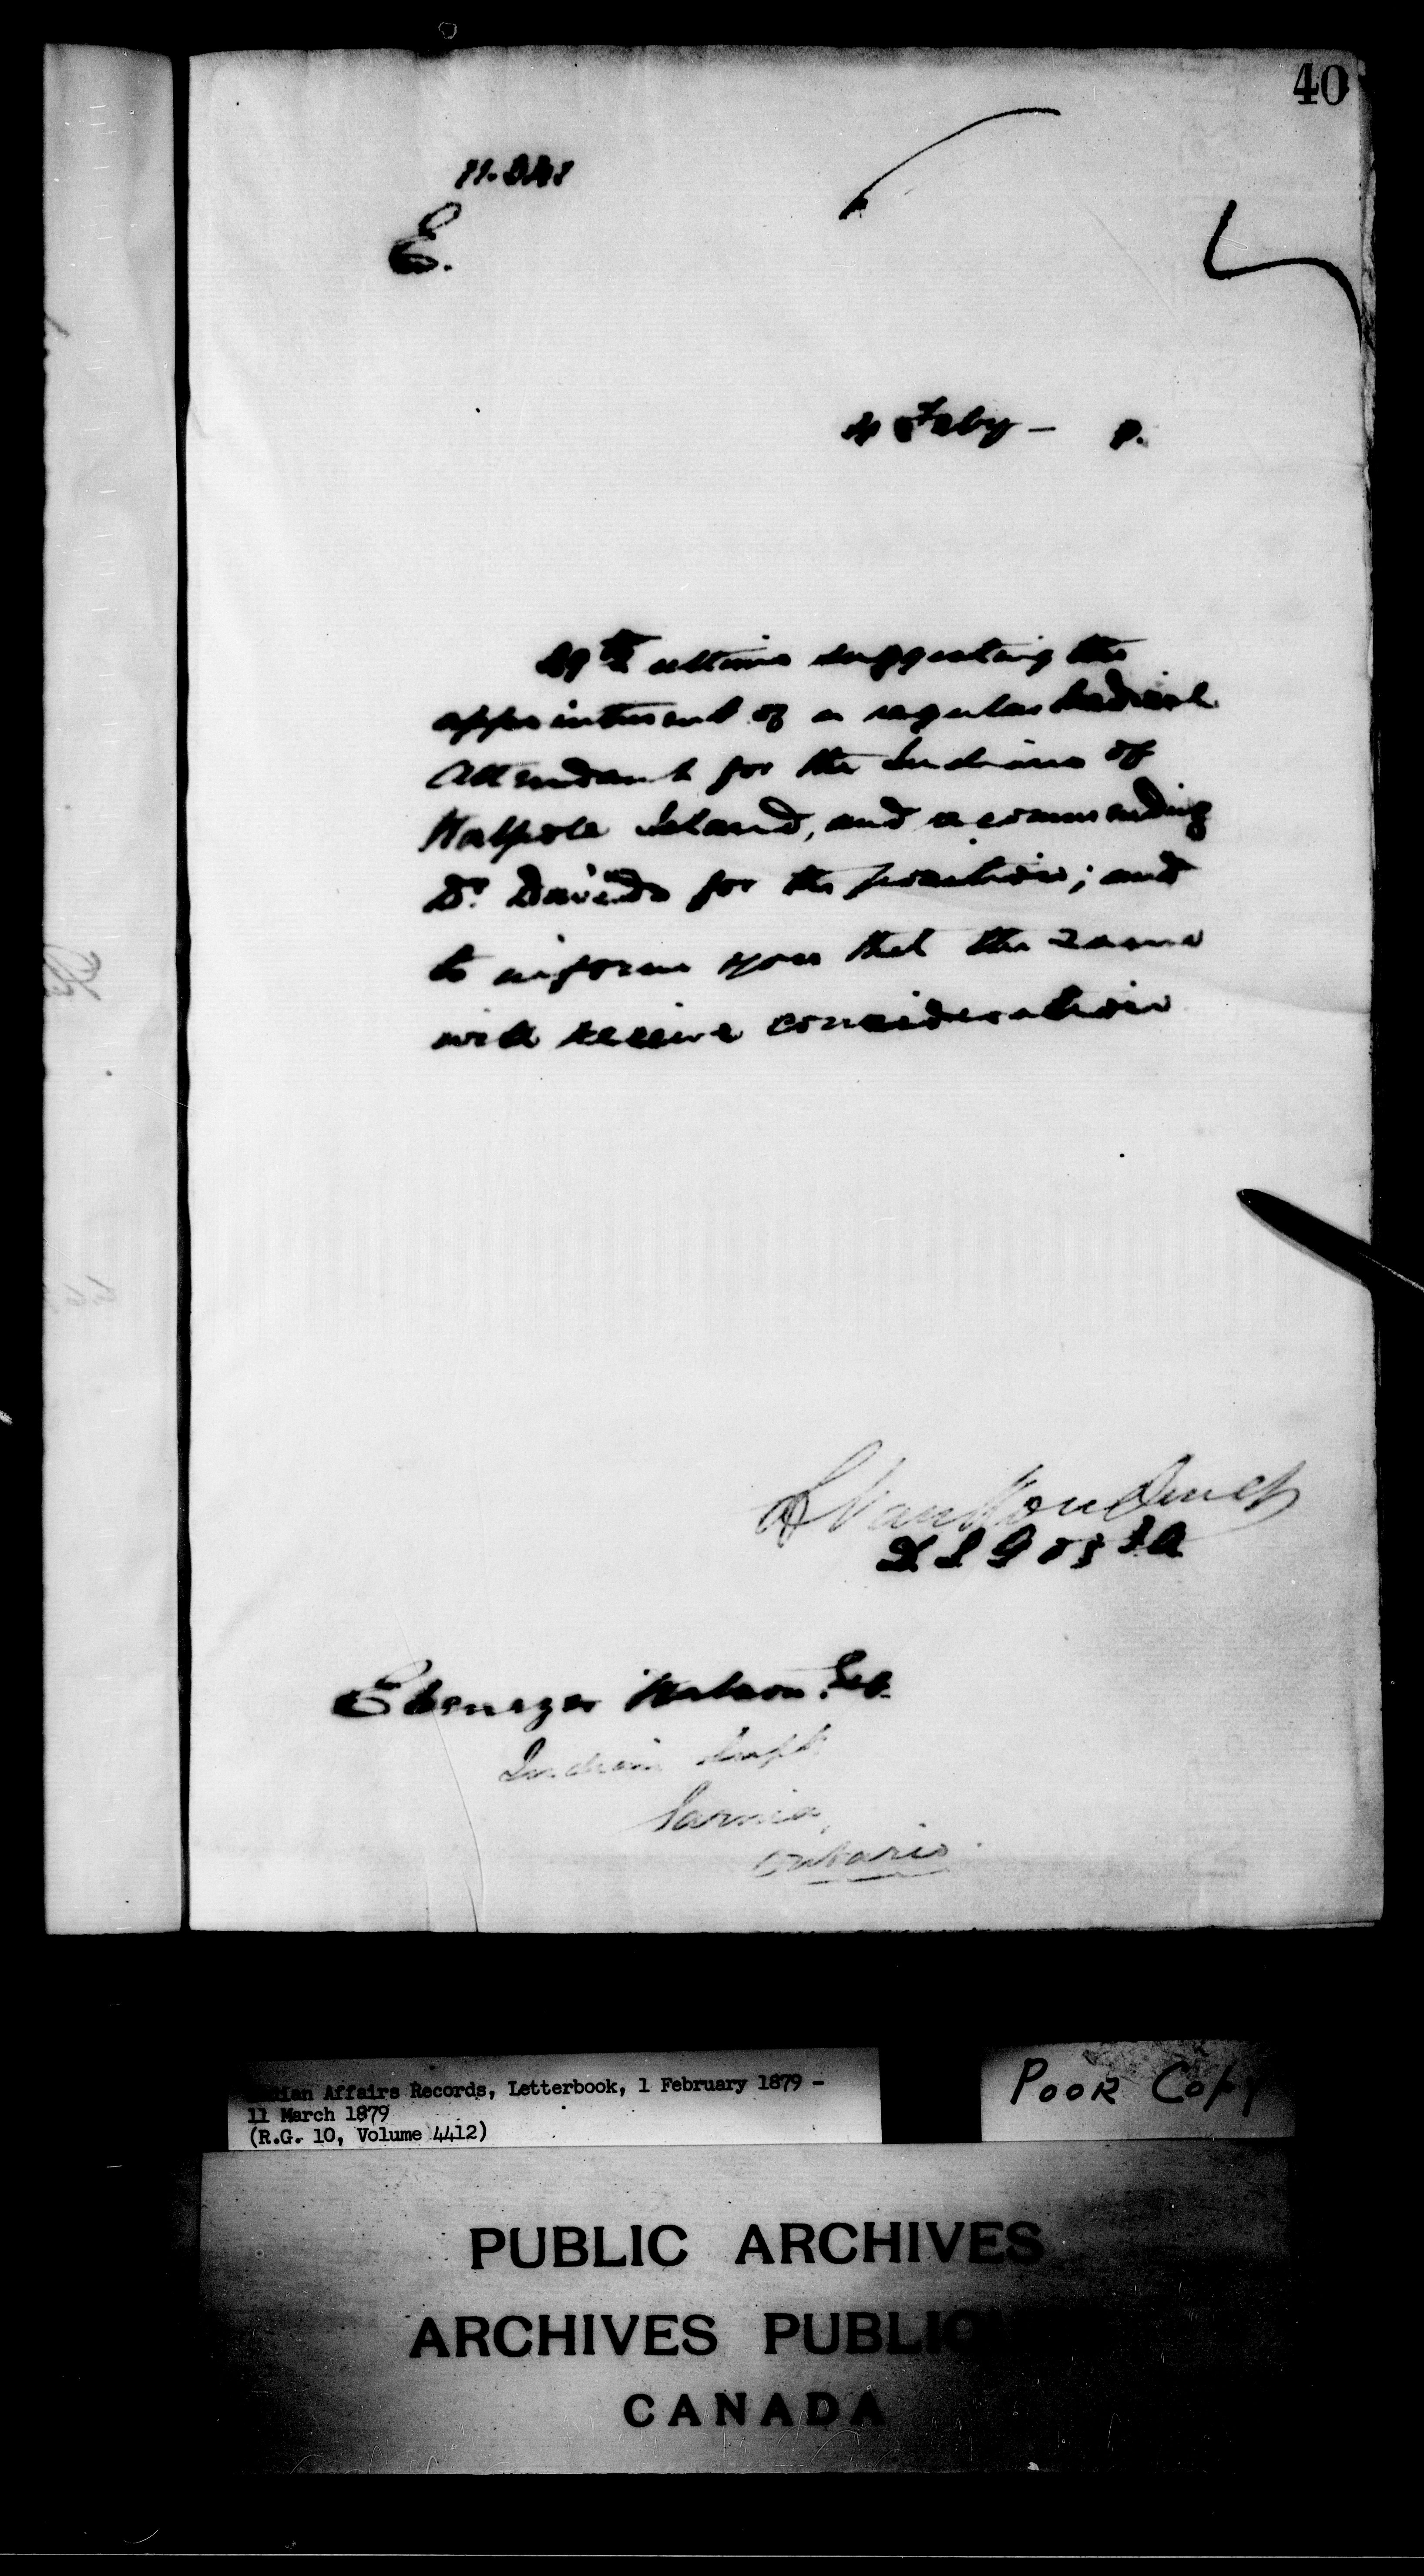 40
E.
4 Feby — 9.
29th ultimo suggesting the
appointment of a regular Medical
Attendant for the Indians of
Walpole Island, and recommending
Dr. for the position; and
to inform you that the same
will receive consideration
L VanKoughnet
D S G of I A
Ebenezer Watson Esq.
Indian Supt.
Sarnia,
Ontario.
Affairs Records, Letterbook, 1 February 1879 -
11 March 1879
(R.G. 10, Volume 4412)
POOR COPY
PUBLIC ARCHIVES
ARCHIVES PUBLIQ
CANADA